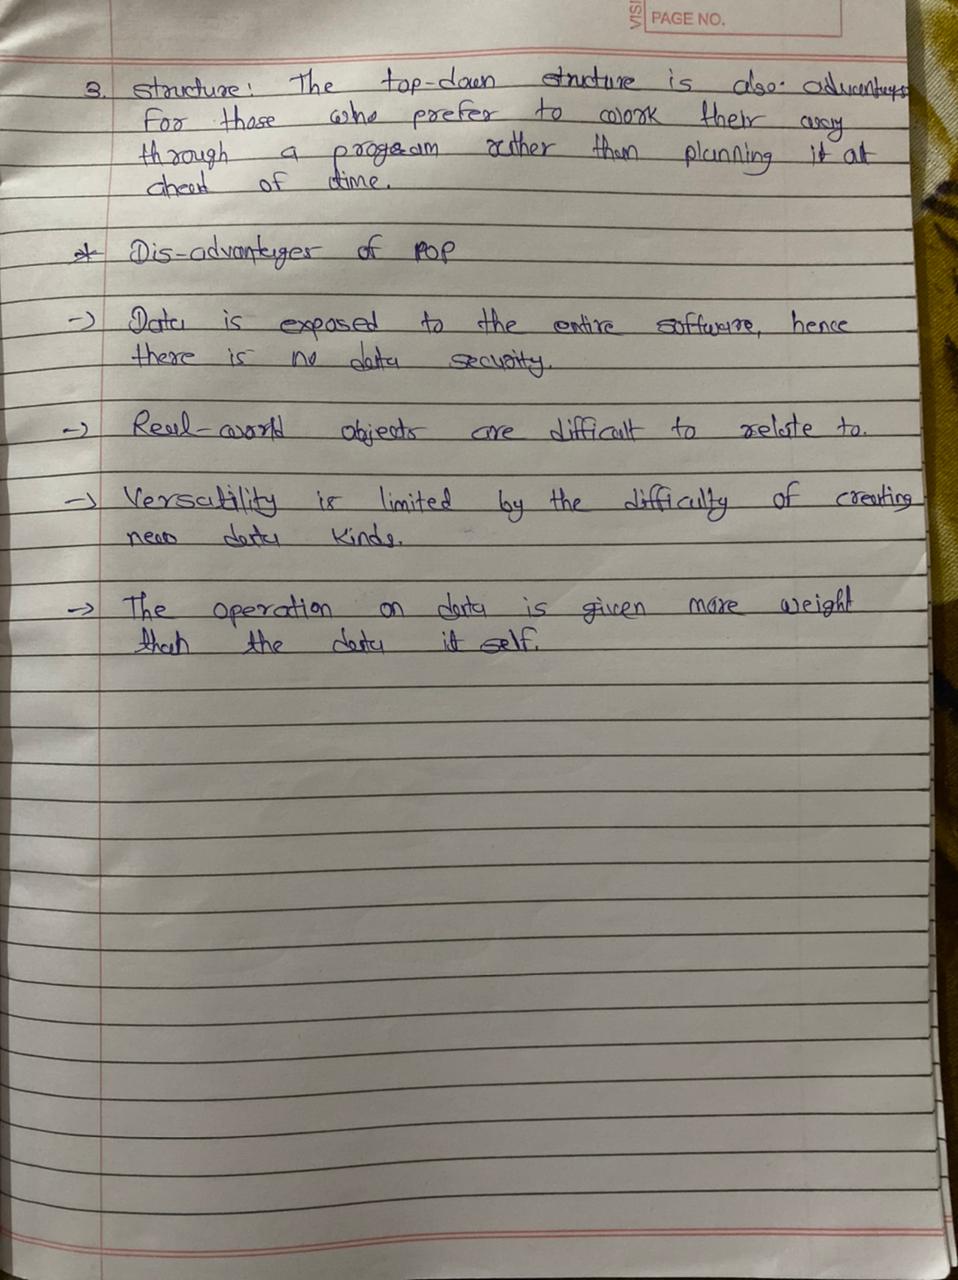 VISI
PAGE NO.
3. structure: The top-down structure is also advantages
For those who prefer to work their way
through a program rather than planning it at
ahead of time.
* Dis-advantages of POP
-> Data is exposed to the entire software, hence
there is no data security.
-> Real-world objects are difficult to relate to.
-> Versatility is limited by the difficulty of creating
new data kinds.
-> The operation on data is given more weight
than the data it self.